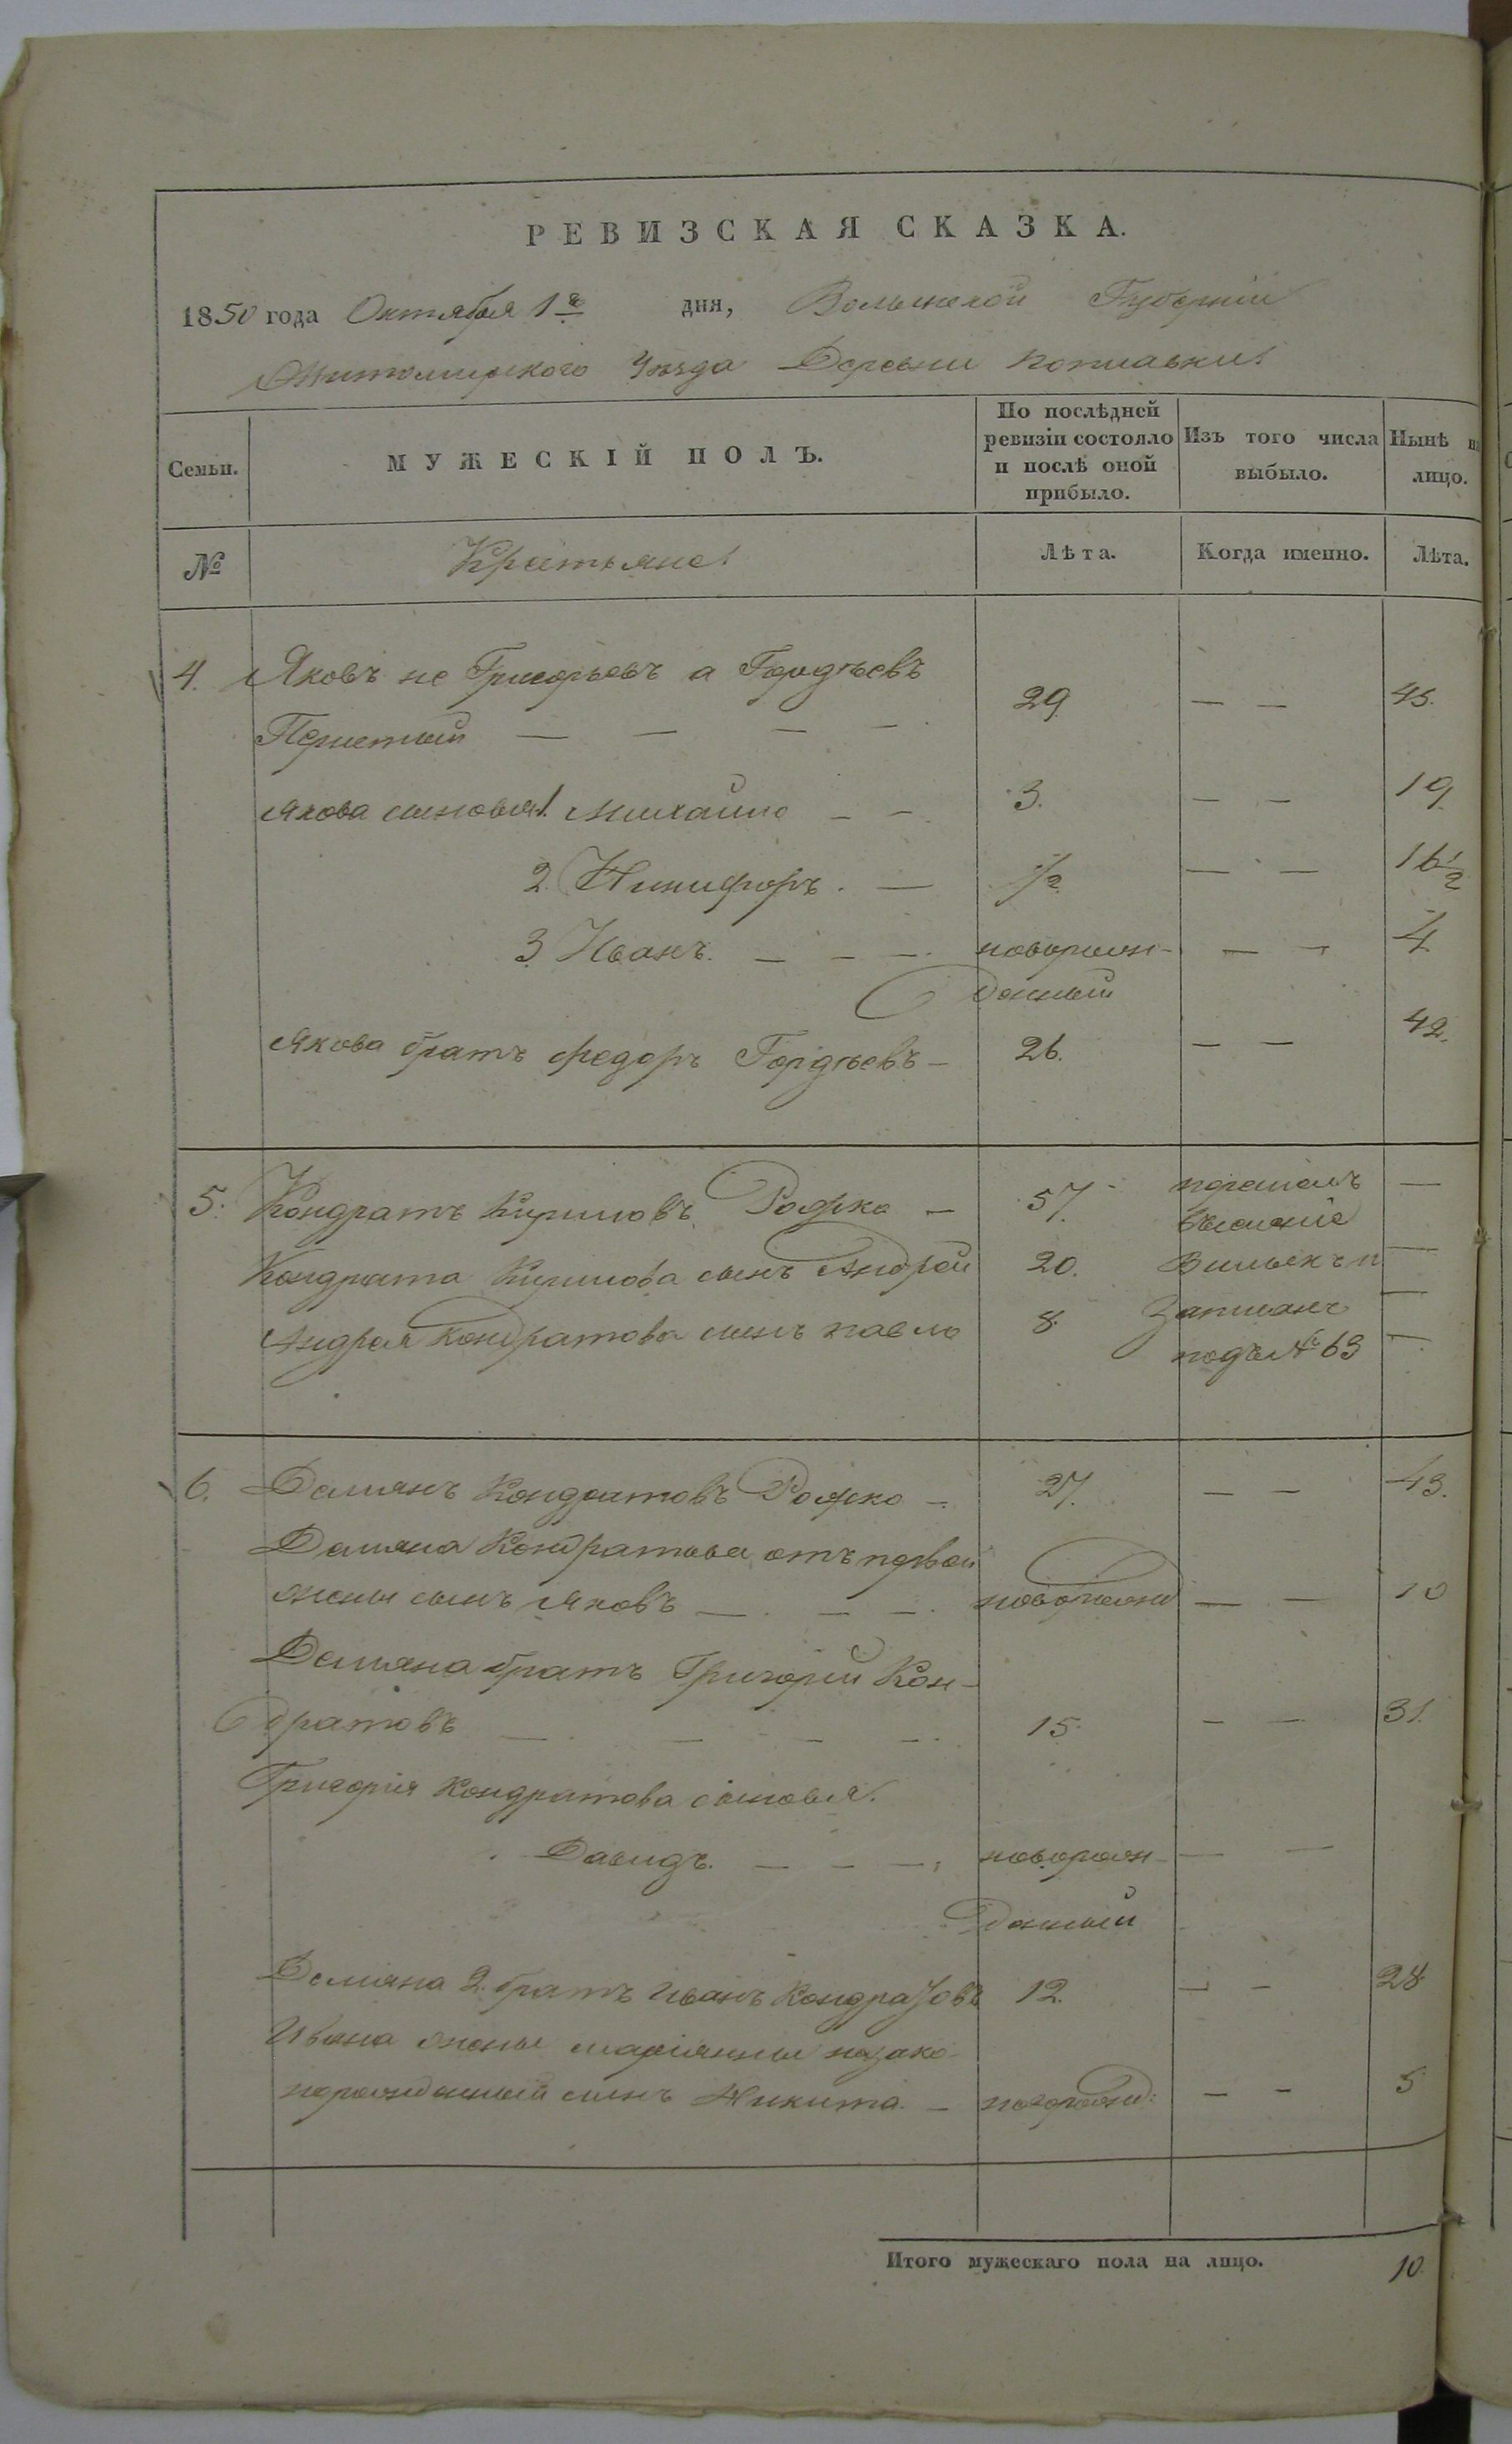 РЕВИЗСКАЯ СКАЗКА.
1850 года Октября 1го дня, Волынской Губерніи
Житомирского Уѣзда Деревни
Семьи. МУЖЕСКІЙ ПОЛЪ. По послѣдней ревизіи состояло и послѣ оной прибыло. Изъ того числа выбыло. Нынѣ на лицо.
№ Лѣта. Когда именно. Лѣта.
4. Яковъ не Григорьевъ а Гордѣевъ
29 — — 45.
Якова сыновья 1. Михайло — — 3. — — 19
2. Никифоръ. — 1/2 — — 16 1/2
3 Иванъ. — — — новорож- — — 4
денный
Якова братъ Федоръ Гордѣевъ — 26. — — 42.
5. Кондратъ Кириловъ — 57. —
Кондрата Кирилова сынъ Андрей 20. —
Андрея Кондратова сынъ Павло 8. Записанъ —
подъ № 63 —
6. Демянъ Кондратовъ — 27. — — 43.
Демяна Кондратова отъ первой
жены сынъ Яковъ — — — новорожд — — 10
Демяна братъ Григорій Кон-
дратовъ — — — — 15 — — 31.
Григорія Кондратова сыновья.
Давидъ. — — — новорож- — —
денный
Демяна 2. братъ Иванъ Кондратовъ 12. — — 28
Ивана жены Маріянны незако-
норожденный сынъ Никита. — новорожд: — — 5
Итого мужескаго пола на лицо. 10